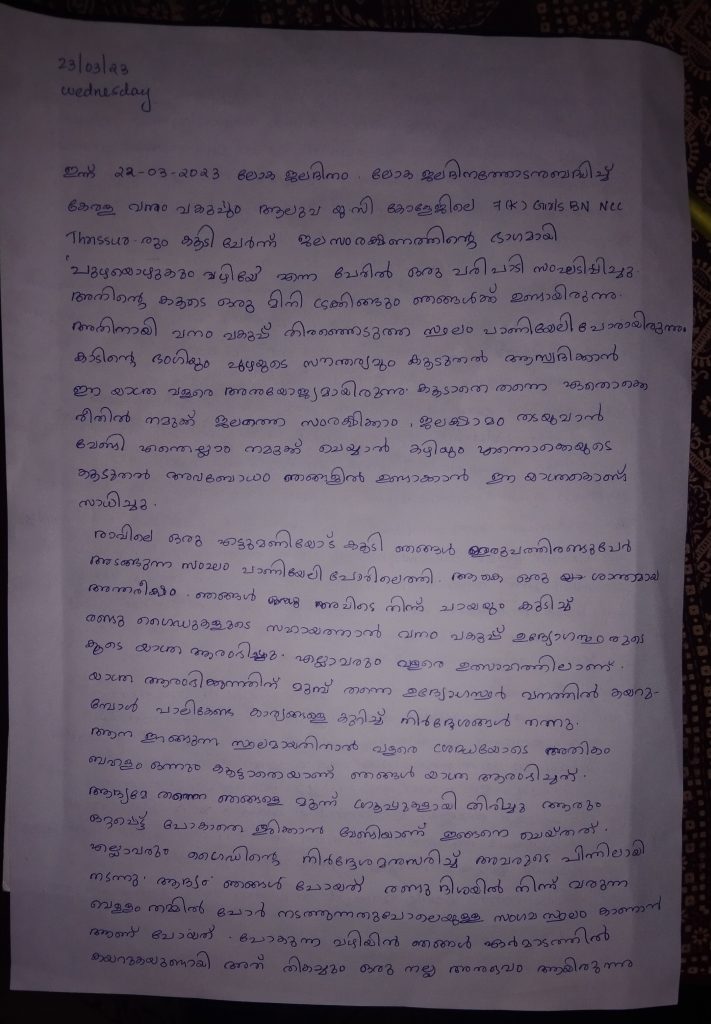 23/03/23
wednesday
ഇന്ന് 22-03-2023 ലോക ജലദിനം. ലോക ജലദിനത്തോടനുബന്ധിച്ച്
കേരള വനം വകുപ്പും ആലുവ യു സി കോളേജിലെ 7(K) Girls BN NCC
Thrissur രും കൂടി ചേർന്ന് ജലസംരക്ഷണത്തിന്റെ ഭാഗമായി
'പുഴയൊഴുകും വഴിയേ' എന്ന പേരിൽ ഒരു പരിപാടി സംഘടിപ്പിച്ചു.
അതിന്റെ കൂടെ ഒരു മിനി ട്രക്കിങ്ങും ഞങ്ങൾക്ക് ഉണ്ടായിരുന്നു.
അതിനായി വനം വകുപ്പ് തിരഞ്ഞെടുത്ത സ്ഥലം പാണിയേലി പോരായിരുന്നു.
കാടിന്റെ ഭംഗിയും പുഴയുടെ സൗന്തര്യവും കൂടുതൽ ആസ്വദിക്കാൻ
ഈ യാത്ര വളരെ അനുയോജ്യമായിരുന്നു. കൂടാതെ തന്നെ ഏതൊക്കെ
രീതിൽ നമുക്ക് ജലത്തെ സംരക്ഷിക്കാം, ജലക്ഷാമം തടയുവാൻ
വേണ്ടി എന്തെല്ലാം നമുക്ക് ചെയ്യാൻ കഴിയും എന്നൊക്കെയുടെ
കൂടുതൽ അവബോധം ഞങ്ങളിൽ ഉണ്ടാക്കാൻ ഈ യാത്രകൊണ്ട്
സാധിച്ചു.
രാവിലെ ഒരു എട്ടുമണിയോട് കൂടി ഞങ്ങൾ ഇരുപത്തിരണ്ടുപേർ
അടങ്ങുന്ന സംഘം പാണിയേലി പോരിലെത്തി. ആകെ ഒരു ശാന്തമായ
അന്തരീക്ഷം. ഞങ്ങൾ അവിടെ നിന്ന് ചായയും കുടിച്ച്
രണ്ടു ഗൈഡുകളുടെ സഹായത്താൽ വനം വകുപ്പ് ഉദ്യോഗസ്ഥരുടെ
കൂടെ യാത്ര ആരംഭിച്ചു. എല്ലാവരും വളരെ ഉത്സാഹത്തിലാണ്.
യാത്ര ആരംഭിക്കുന്നതിന് മുമ്പ് തന്നെ ഉദ്യോഗസ്ഥർ വനത്തിൽ കയറു-
മ്പോൾ പാലികേണ്ട കാര്യങ്ങളെ കുറിച്ച് നിർദ്ദേശങ്ങൾ തന്നു.
ആന ഇറങ്ങുന്ന സ്ഥലമായതിനാൽ വളരെ ശ്രദ്ധയോടെ അതികം
ബഹളം ഒന്നും കൂട്ടാതെയാണ് ഞങ്ങൾ യാത്ര ആരംഭിച്ചത്.
ആദ്യമേ തന്നെ ഞങ്ങളെ മൂന്ന് ഗ്രൂപ്പുകളായി തിരിച്ചു ആരും
ഒറ്റപ്പെട്ട് പോകാതെ ഇരിക്കാൻ വേണ്ടിയാണ് ഇങ്ങനെ ചെയ്തത്.
എല്ലാവരും ഗൈഡിന്റെ നിർദ്ദേശമനുസരിച്ച് അവരുടെ പിന്നിലായി
നടന്നു. ആദ്യം ഞങ്ങൾ പോയത് രണ്ടു ദിശയിൽ നിന്ന് വരുന്ന
വെള്ളം തമ്മിൽ പോർ നടത്തുന്നതുപോലെയുള്ള സംഗമ സ്ഥലം കാണാൻ
ആണ് പോയത്. പോകുന്ന വഴിയിൽ ഞങ്ങൾ ഏർമാടത്തിൽ
കയറുകയുണ്ടായി അത് തികച്ചും ഒരു നല്ല അനുഭവം ആയിരുന്നു